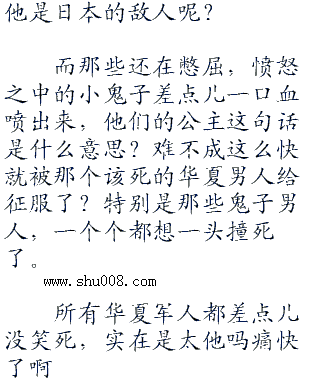 他是日本的敌人呢？
而那些还在憋屈，愤怒
之中的小鬼子差点儿一口血
喷出来，他们的公主这句话
是什么意思？难不成这么快
就被那个该死的华夏男人给
征服了？特别是那些鬼子男
人，一个个都想一头撞死
了。
www.shu008.com
所有华夏军人都差点儿
没笑死，实在是太他吗痛快
了啊